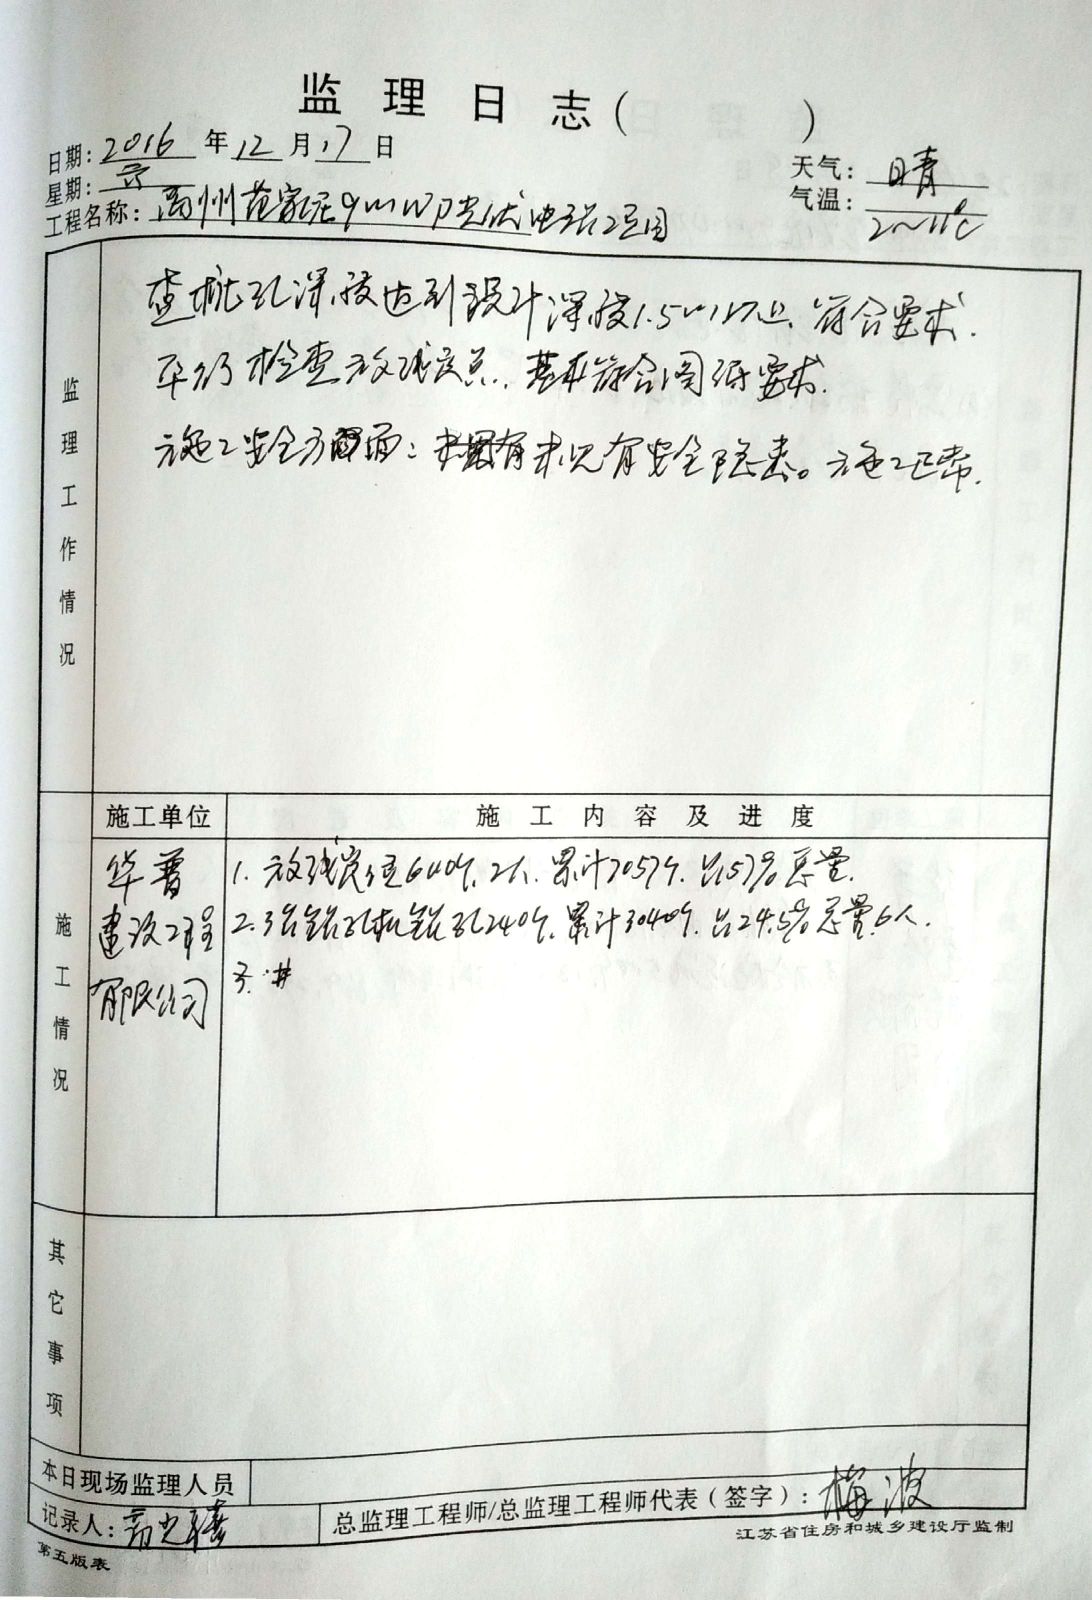 监理日志( )
日期:2016年12月17日
星期:六
天气:晴
气温:2~11℃
工程名称:禹州范家庄9MWP光伏电站工程项目
监理工作情况
查桩孔深度达到设计深度1.5m以上、符合要求.
平行检查放线定点、基本符合图纸要求.
施工安全方面:未见有安全隐患。施工正常.
施工单位
施工内容及进度
施工情况
华普
建设工程
有限公司
1.放线定位640个,2人.累计7057个.占57%总量.
2.3台钻孔机钻孔240个,累计3040个.占24.5%总量.6人.
3.
其它事项
本日现场监理人员
记录人:
总监理工程师/总监理工程师代表(签字):梅波
江苏省住房和城乡建设厅监制
第五版表